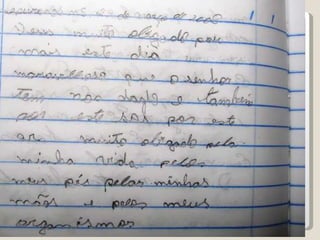 de março de
Deus muito obrigado por
mais este dia
maravilhoso que o senhor
tem nos dado e também
por este sos por este
ar muito obrigado pela
minha vida pelos
meus pés pelas minhas
mãos e pelos meus
organismos